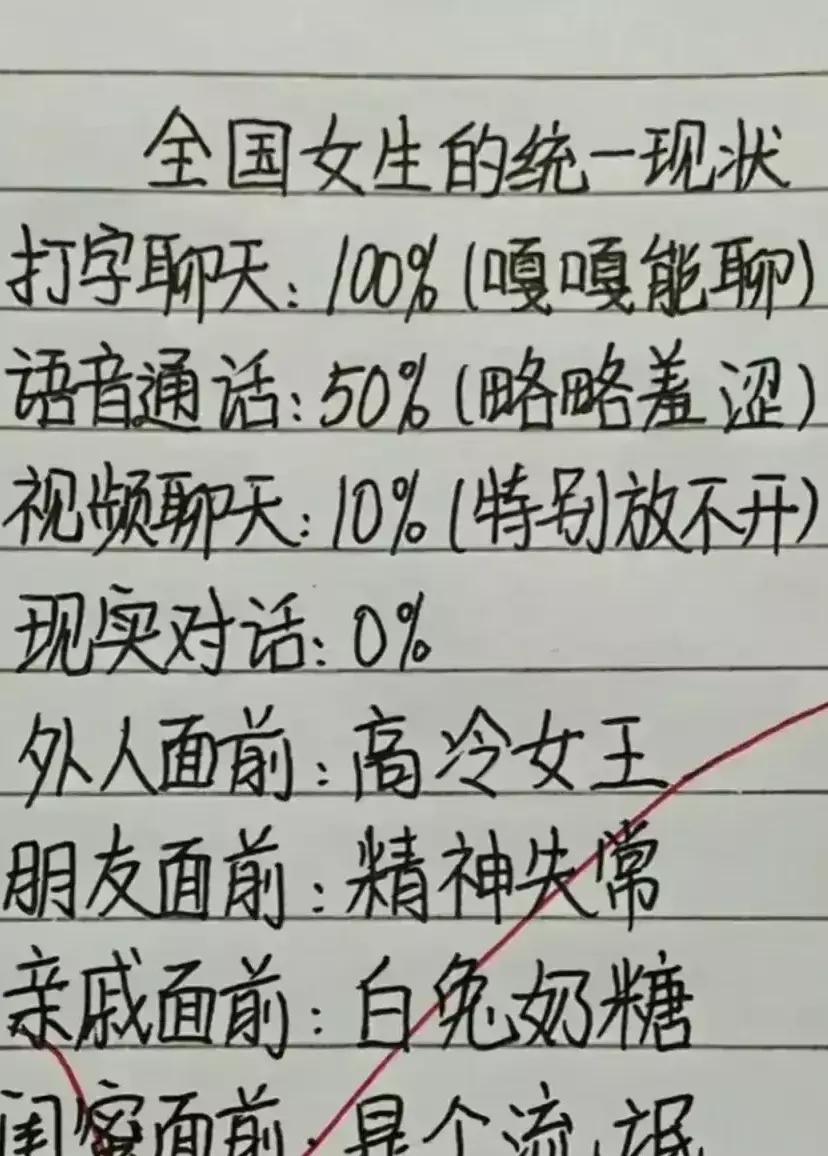 全国女生的统一现状
打字聊天:100%(嘎嘎能聊)
语音通话:50%(略略羞涩)
视频聊天:10%(特别放不开)
现实对话:0%
外人面前:高冷女王
朋友面前:精神失常
亲戚面前:白兔奶糖
闺蜜面前:是个流氓